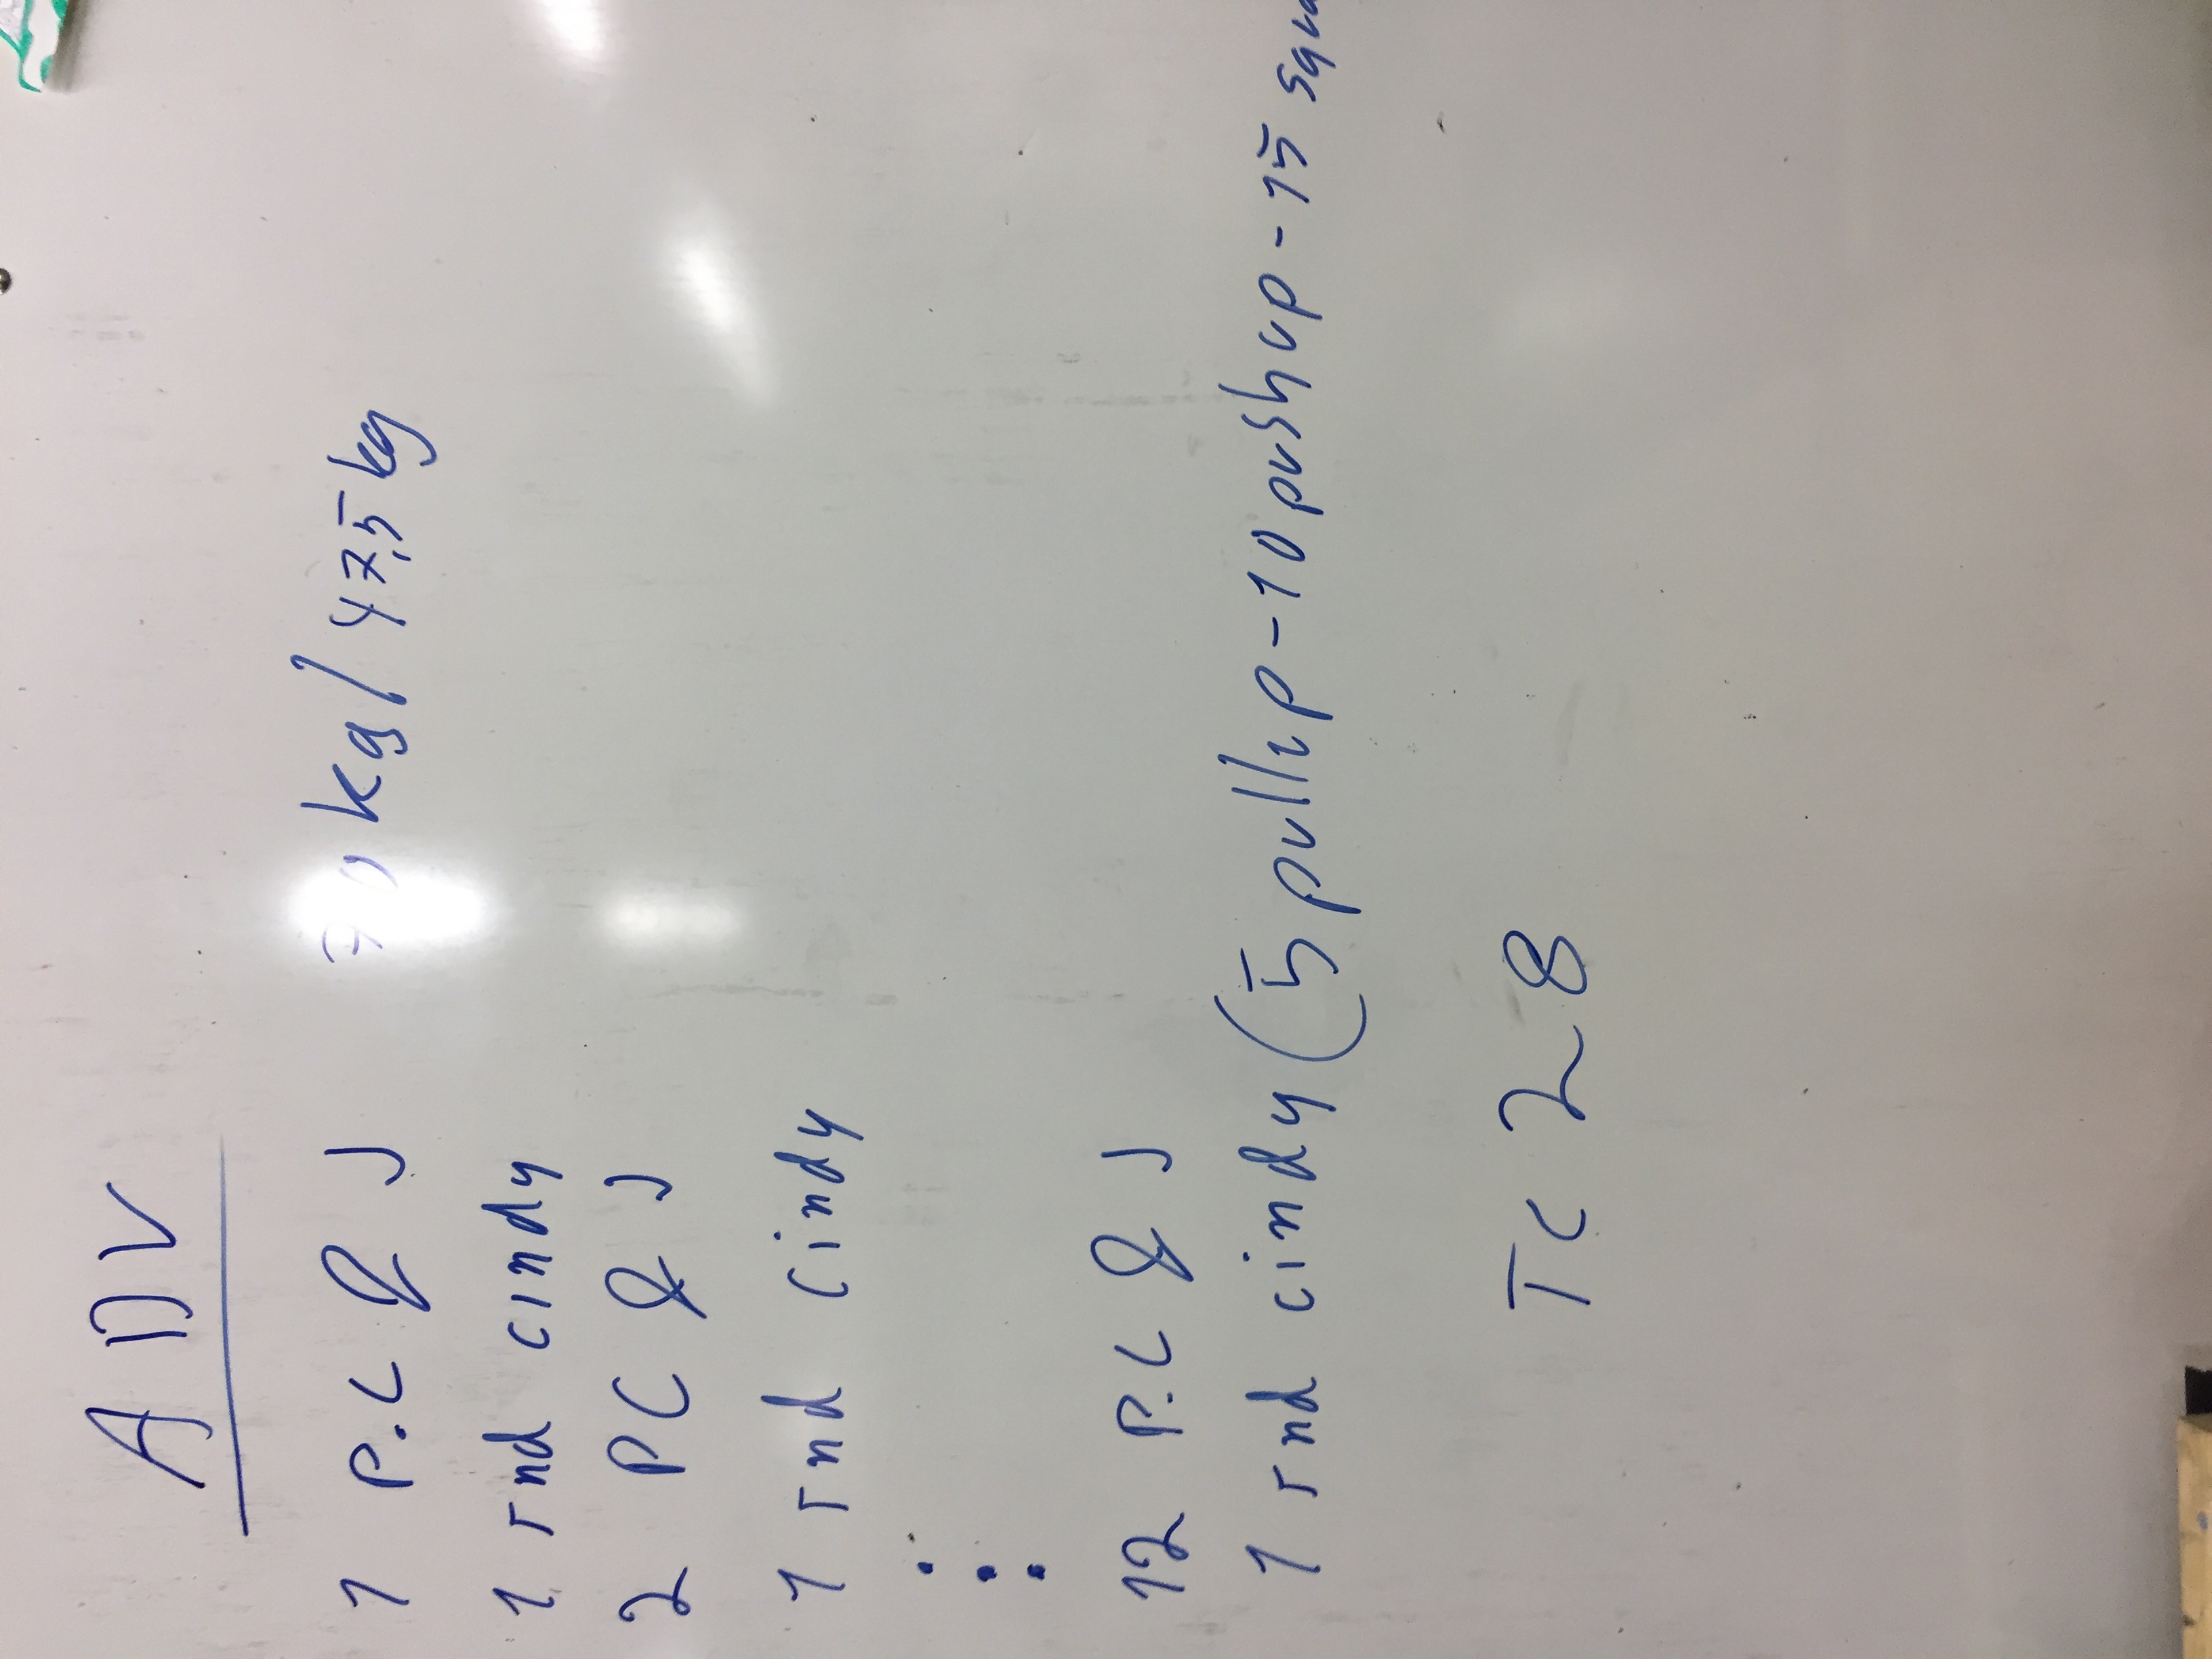 ADV
1 P.C & J 70 kg / 47,5 kg
1 rnd cindy
2 PC & J
1 rnd cindy
12 P.C & J
1 rnd cindy (5 pullup - 10 pushup - 15 squa
TC 28